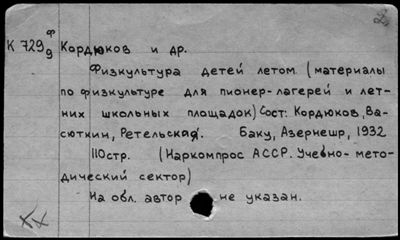 К 729 ф/9 Кордюков и др.
Физкультура детей летом (материалы
по физкультуре для пионер-лагерей и лет-
них школьных площадок) Сост: Кордюков, Ва-
сюткин, Ретельская. Баку, Азернешр, 1932
110стр. (Наркомпрос АССР. Учебно-мето-
дический сектор)
На обл. автор не указан.